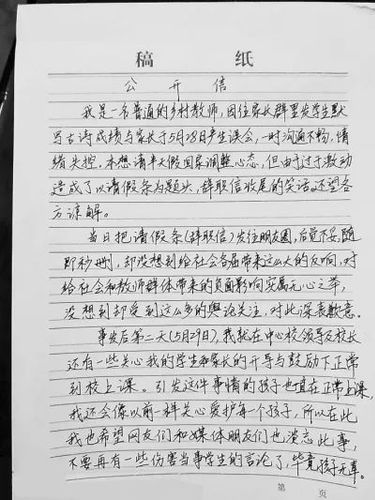 稿 纸
公 开 信
我是一名普通的乡村教师，因往家长群里发学生默
写古诗成绩与家长于5月28日产生误会，一时沟通不畅，情
绪失控。本想请半天假回家调整心态，但由于过于激动
造成了以请假条为题头，辞职信收尾的笑话。还望各
方谅解。
当日把请假条(辞职信)发往朋友圈，后觉不妥，随
即秒删，却没想到给社会各届带来这么大的反响，对
给社会和教师群体带来的负面影响实属无心之举，
没想到却受到这么多的舆论关注，对此深表歉意。
事发后第二天(5月29日)，我就在中心校领导及校长
还有一些关心我的学生和家长的开导与鼓励下正常
到校上课。引发这件事情的孩子也在正常上课，
我还会像以前一样关心爱护每一个孩子，所以在此
我也希望网友们和媒体朋友们也淡忘此事，
不要再有一些伤害当事学生的言论了，毕竟孩子无辜。
第 页